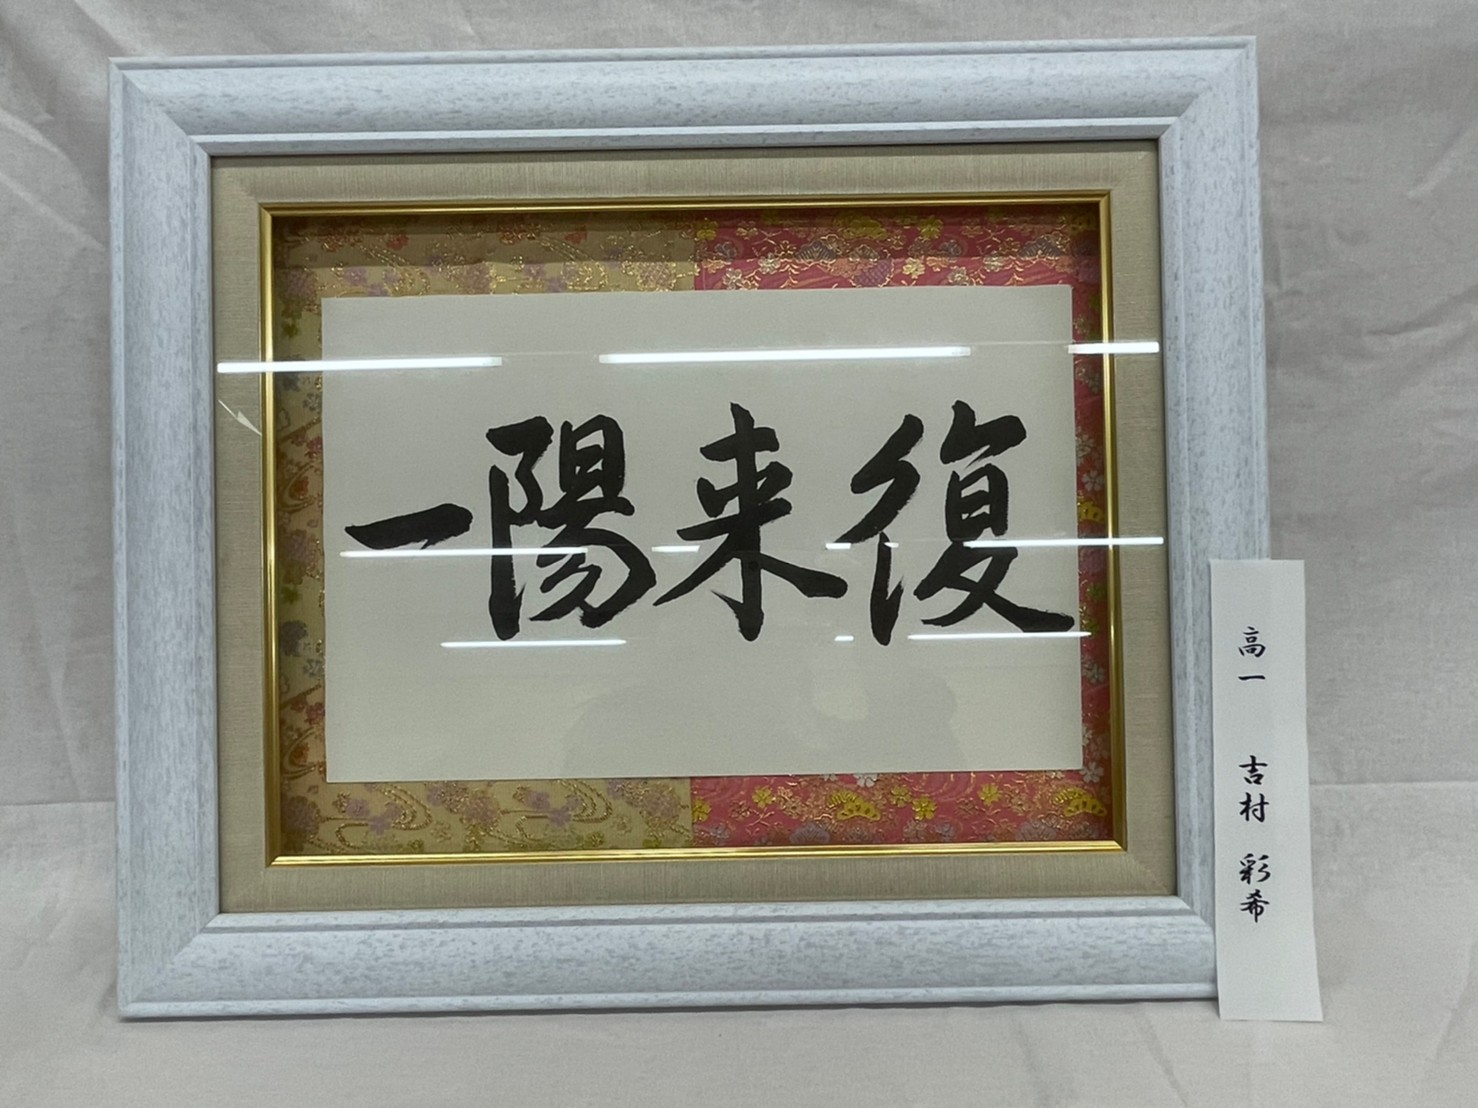 一陽来復
高一 吉村 彩希